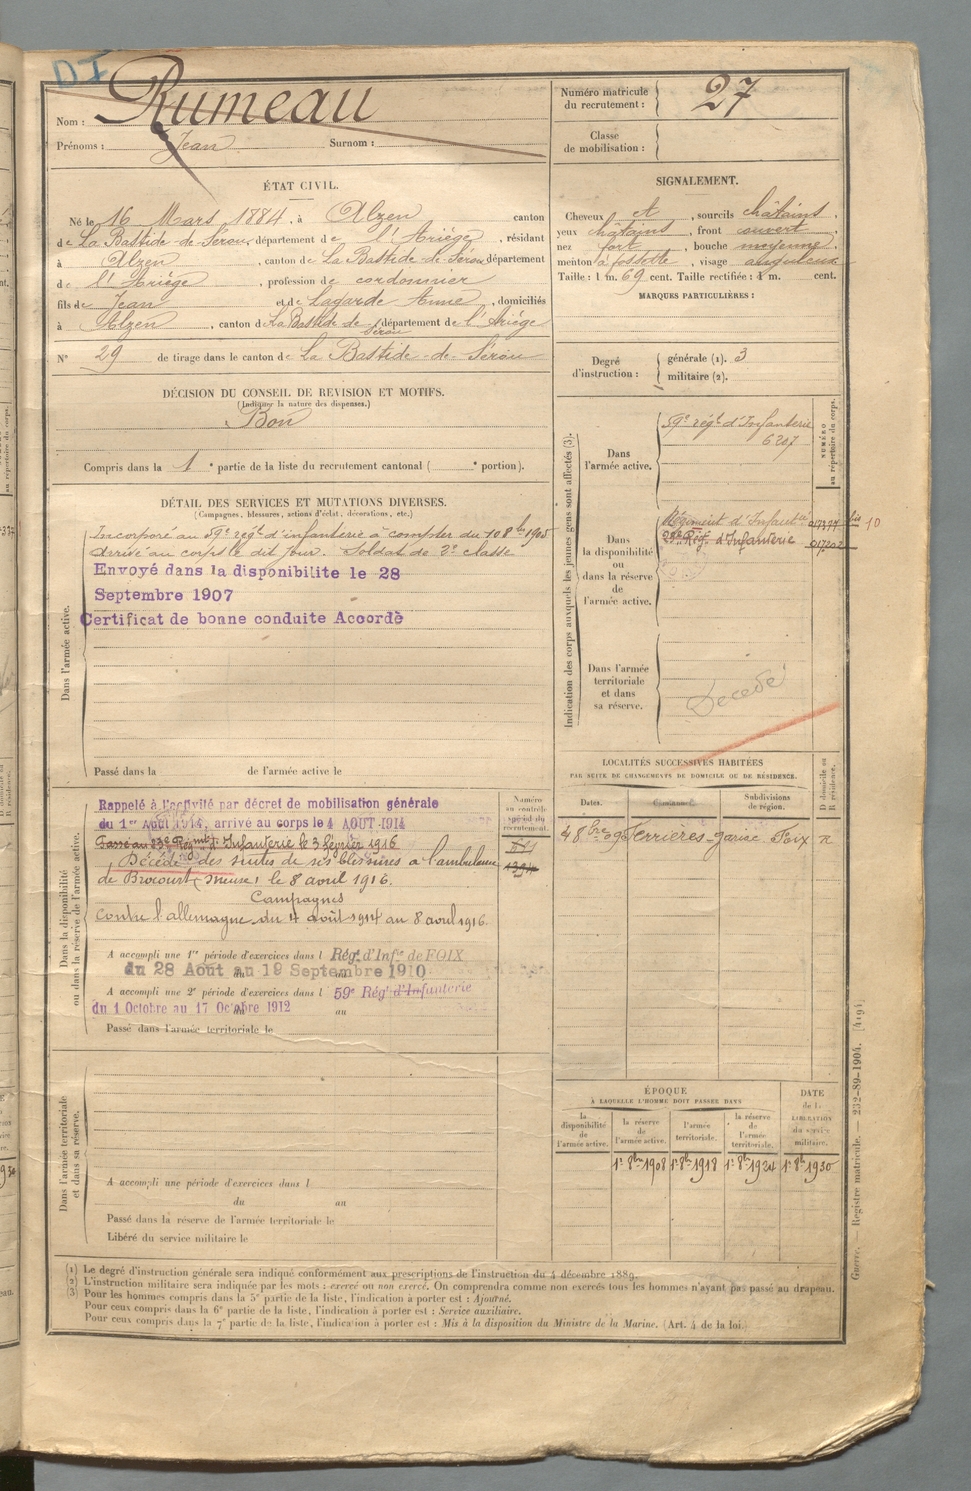 DI
Nom : Rumeau
Prénoms : Jean Surnom :
ÉTAT CIVIL.
Né le 16 Mars 1884, à Alzen canton
de La Bastide-de-Sérou, département de l'Ariège, résidant
à Alzen, canton de La Bastide-de-Sérou, département
de l'Ariège, profession de cordonnier
fils de Jean et de Lagarde Anne, domiciliés
à Alzen, canton de La Bastide de Sérou, département de l'Ariège
N° 29 de tirage dans le canton de La Bastide-de-Sérou
DÉCISION DU CONSEIL DE REVISION ET MOTIFS.
(Indiquer la nature des dispenses.)
Bon
Compris dans la 1e partie de la liste du recrutement cantonal ( e portion).
DÉTAIL DES SERVICES ET MUTATIONS DIVERSES.
(Campagnes, blessures, actions d'éclat, décorations, etc.)
Dans l'armée active.
Incorporé au 59e régt d'infanterie à compter du 10 8bre 1905
Arrivé au corps le dit jour. Soldat de 2e classe
Envoyé dans la disponibilite le 28
Septembre 1907
Certificat de bonne conduite Accordè
Passé dans la de l'armée active le
Dans la disponibilité
ou dans la réserve de l'armée active.
Numéro
au contrôle
spécial du
recrutement.
Rappelé à l'activité par décret de mobilisation générale
du 1er Août 1914, arrivé au corps le 4 AOUT 1914
Passé au 23e Régimt d'Infanterie le 3 février 1916
Décédé des suites de ses blessures à l'ambulance
de Brocourt (Meuse) le 8 avril 1916.
Campagnes
Contre l'allemagne du 4 août 1914 au 8 avril 1916.
A accompli une 1re période d'exercices dans l Régt d'Infie de FOIX
du 28 Aout au 19 Septembre 1910
A accompli une 2e période d'exercices dans l 59e Régt d'Infanterie
du 1 Octobre au 17 Octobre 1912 au
Passé dans l'armée territoriale le
Dans l'armée territoriale
et dans sa réserve.
A accompli une période d'exercices dans l
du au
Passé dans la réserve de l'armée territoriale le
Libéré du service militaire le
Numéro matricule
du recrutement : 27
Classe
de mobilisation :
SIGNALEMENT.
Cheveux et, sourcils châtains,
yeux châtains, front ouvert,
nez fort, bouche moyenne,
menton à fossette, visage anguleux
Taille : 1 m. 69 cent. Taille rectifiée : 1 m. cent.
MARQUES PARTICULIÈRES :
Degré
d'instruction :
générale (1). 3
militaire (2).
Indication des corps auxquels les jeunes gens sont affectés (3).
NUMÉRO
au répertoire du corps.
Dans
l'armée active.
59e régt d'Infanterie
6207
Dans
la disponibilité
ou
dans la réserve
de
l'armée active.
Régiment d'Infantie
d'Infanterie
10
Dans l'armée
territoriale
et dans
sa réserve.
Décédé
LOCALITÉS SUCCESSIVES HABITÉES
PAR SUITE DE CHANGEMENTS DE DOMICILE OU DE RÉSIDENCE.
Dates.
Communes.
Subdivisions
de région.
D domicile ou
R résidence.
4 8bre 09 Ferrières-gariac Foix R
ÉPOQUE
À LAQUELLE L'HOMME DOIT PASSER DANS
DATE
de la
LIBÉRATION
du service
militaire.
la
disponibilité
de
l'armée active.
la réserve
de
l'armée active.
l'armée
territoriale.
la réserve
de
l'armée
territoriale.
1er 8bre 1908 1er 8bre 1918 1er 8bre 1924 1er 8bre 1930
Guerre. — Registre matricule. — 232-89-1904. [4194]
(1) Le degré d'instruction générale sera indiqué conformément aux prescriptions de l'instruction du 4 décembre 1889.
(2) L'instruction militaire sera indiquée par les mots : exercé ou non exercé. On comprendra comme non exercés tous les hommes n'ayant pas passé au drapeau.
(3) Pour les hommes compris dans la 5e partie de la liste, l'indication à porter est : Ajourné.
Pour ceux compris dans la 6e partie de la liste, l'indication à porter est : Service auxiliaire.
Pour ceux compris dans la 7e partie de la liste, l'indication à porter est : Mis à la disposition du Ministre de la Marine. (Art. 4 de la loi.)